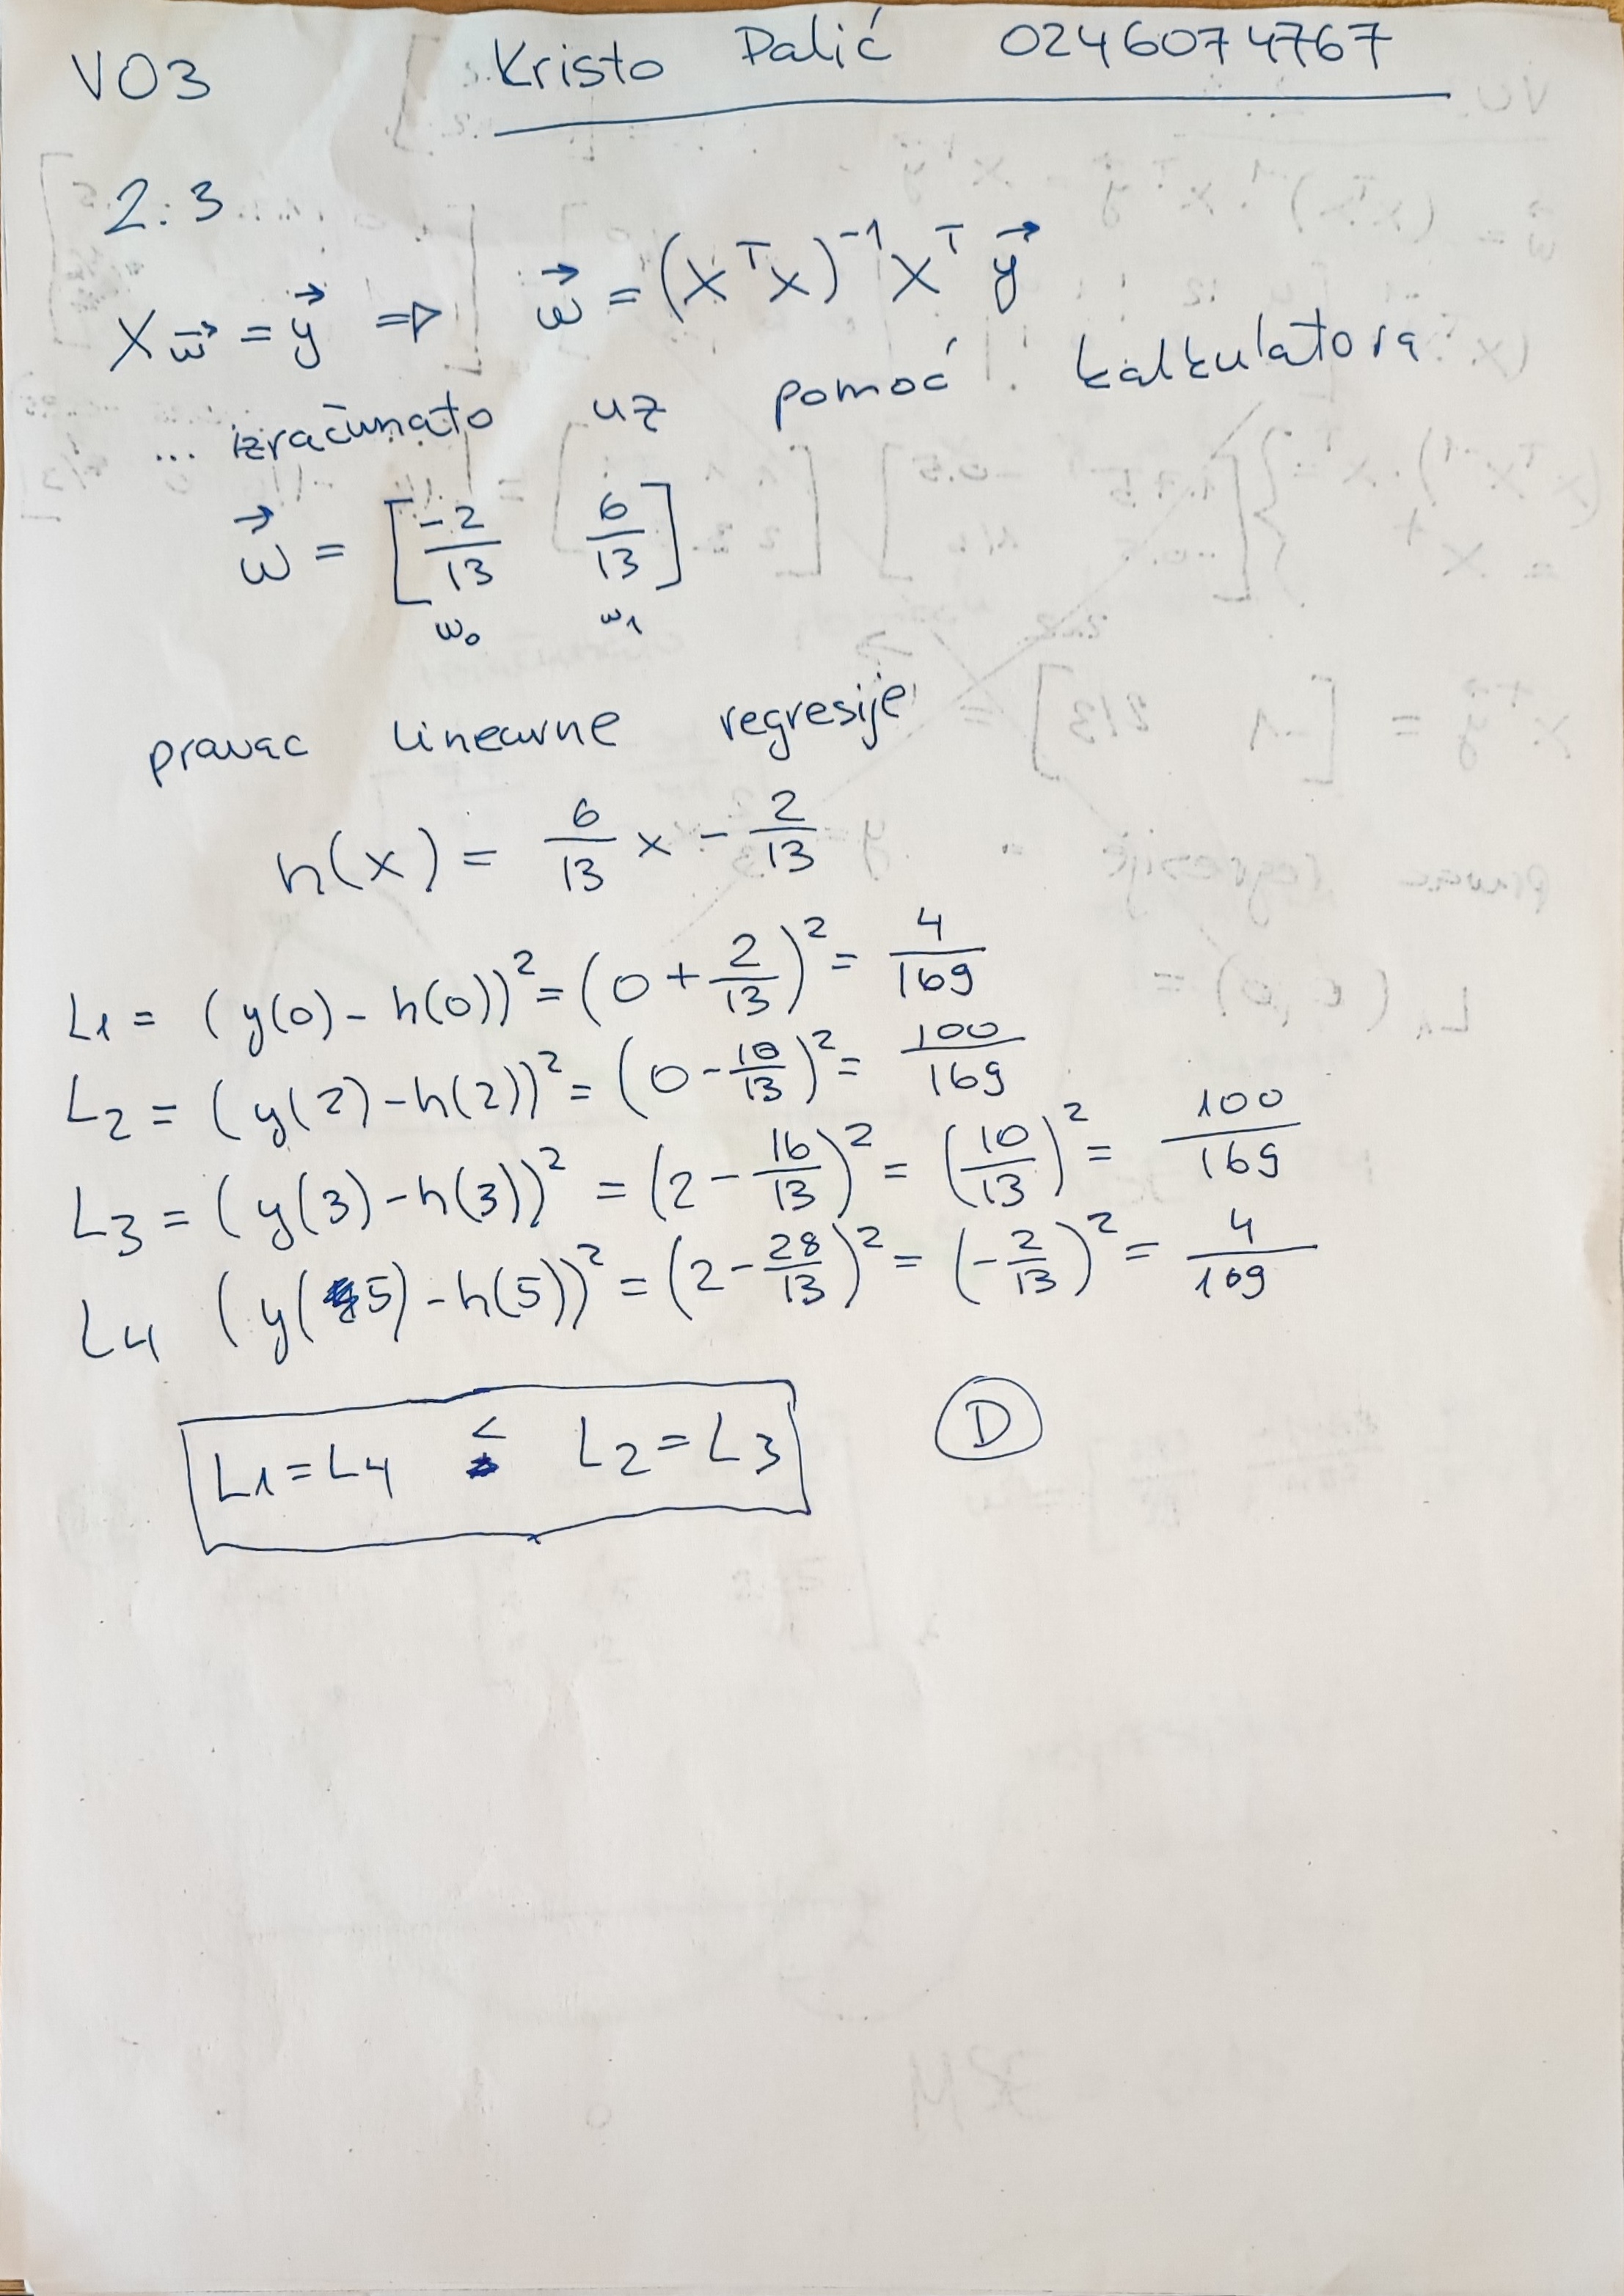 VO3 Kristo Palić 0246074767
2.3
X w⃗ = y⃗ ⇒ w⃗ = (XᵀX)⁻¹ Xᵀ y⃗
... izračunato uz pomoć kalkulatora
w⃗ = [-2/13 6/13]
w₀ w₁
pravac linearne regresije
h(x) = 6/13 x - 2/13
L1 = (y(0) - h(0))² = (0 + 2/13)² = 4/169
L2 = (y(2) - h(2))² = (0 - 10/13)² = 100/169
L3 = (y(3) - h(3))² = (2 - 16/13)² = (10/13)² = 100/169
L4 (y(5) - h(5))² = (2 - 28/13)² = (-2/13)² = 4/169
L1 = L4 < L2 = L3 D